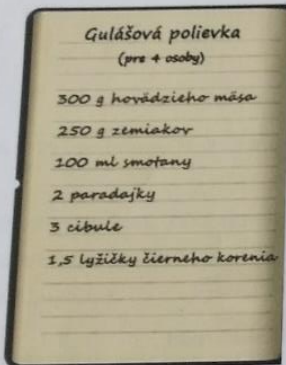 Gulášová polievka
(pre 4 osoby)
300 g hovädzieho mäsa
250 g zemiakov
100 ml smotany
2 paradajky
3 cibule
1,5 lyžičky čierneho korenia